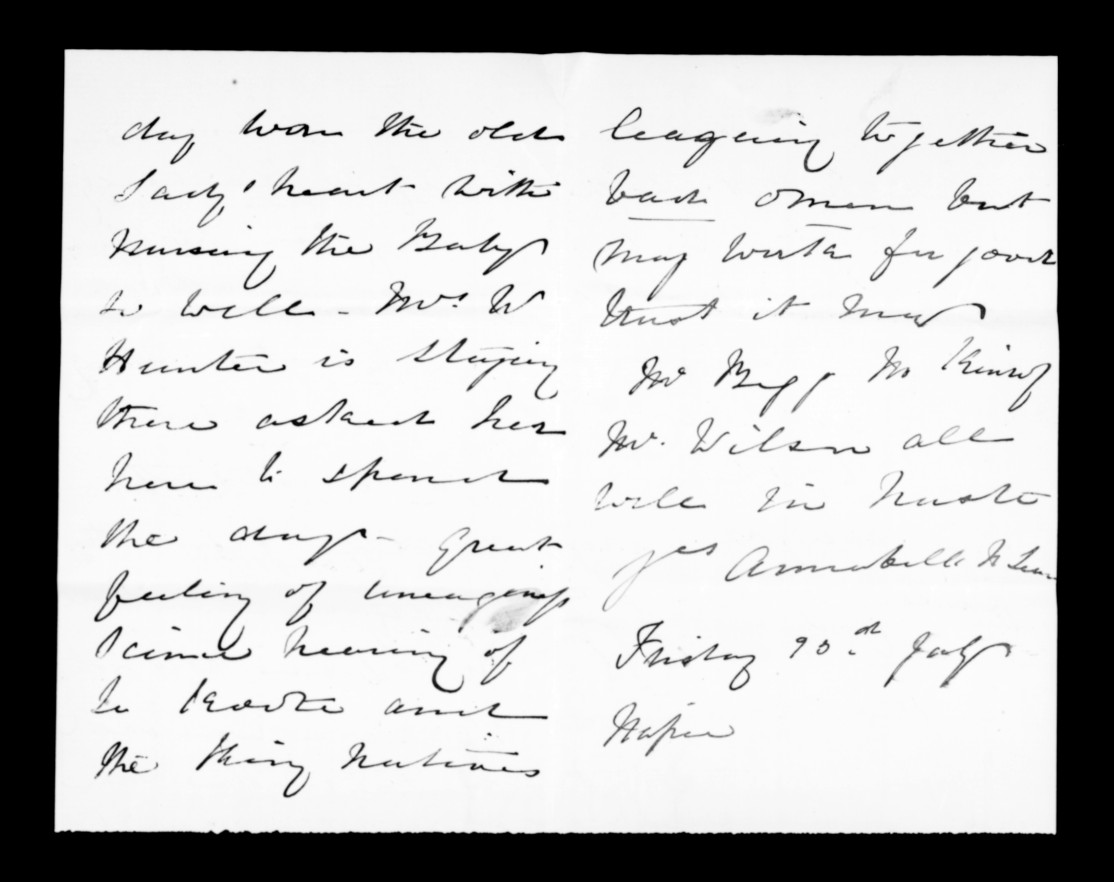 day won the old
Lady's heart with
nursing the Baby
so well - Mrs W
Hunter is staying
there asked her
here to spend
the day - great
feeling of
since hearing of
Te Kooti and
the King natives
leaguing together
bad omen but
may work for good
trust it may
Mr Begg
Mr. Wilson all
well in haste
yrs Annabella McLean
Friday July
Napier